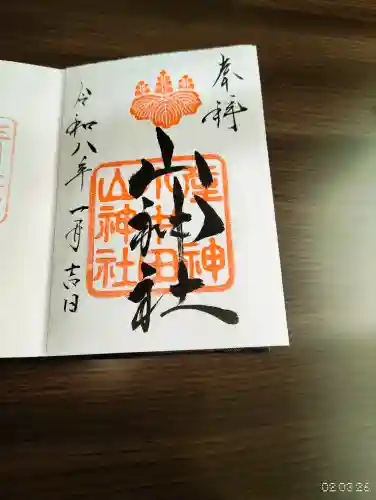 奉拝
山神社
山神社
令和八年一月吉日
02 03 26